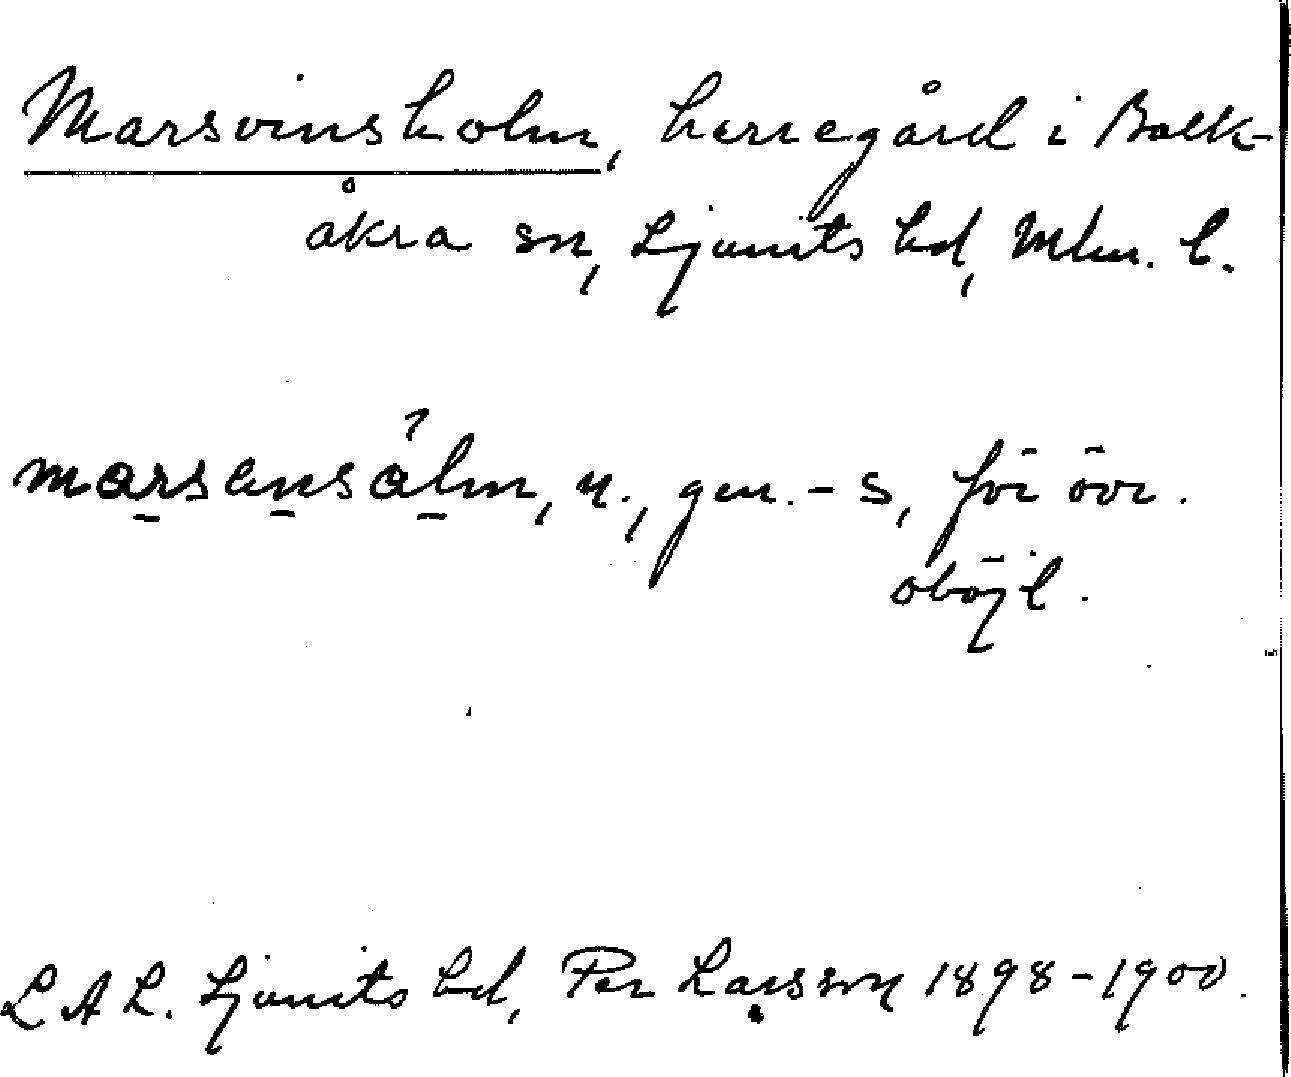 Marsvinsholm, herregård i Balk-
åkra sn, Ljunits hd, Mlm. l.
marsənsålm, n., gen. -s, för övr.
oböjl.
LAL. Ljunits hd, Per Larsson 1898-1900.